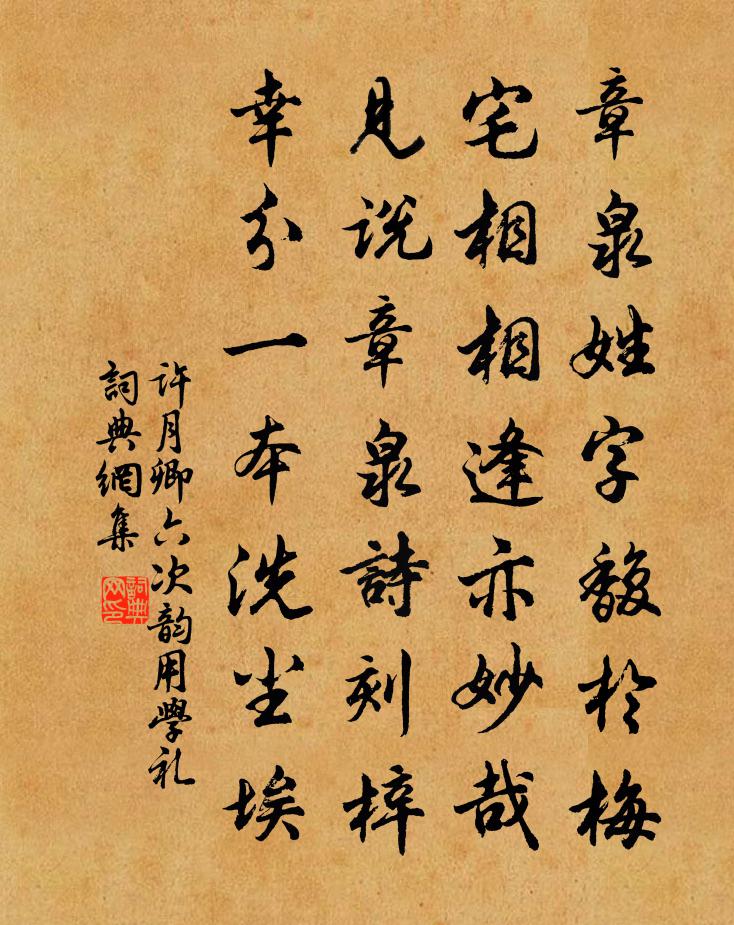 章泉姓字馥於梅
宅相相逢亦妙哉
見说章泉詩刻梓
幸分一本洗尘埃
许月卿六次韵用學礼
詞典網集
詞典网印